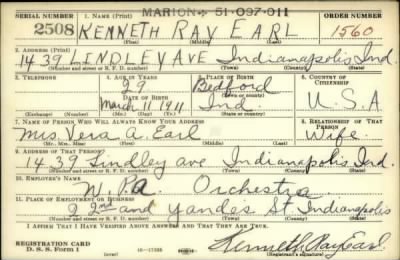 MARION 51-097-011
SERIAL NUMBER 1. NAME (Print) ORDER NUMBER
2508 KENNETH RAY EARL 1560
(First) (Middle) (Last)
2. ADDRESS (Print)
1439 LINDLEY AVE Indianapolis Ind.
(Number and street or R. F. D. number) (Town) (County) (State)
3. TELEPHONE 4. AGE IN YEARS 5. PLACE OF BIRTH 6. COUNTRY OF CITIZENSHIP
29 Bedford
DATE OF BIRTH (Town or county)
March 11 1911 Ind. U.S.A
(Exchange) (No.) (Mo.) (Day) (Yr.) (State or country)
7. NAME OF PERSON WHO WILL ALWAYS KNOW YOUR ADDRESS 8. RELATIONSHIP OF THAT PERSON
Mrs. Vera A. Earl Wife
(Mr., Mrs., Miss) (First) (Middle) (Last)
9. ADDRESS OF THAT PERSON
1439 Lindley ave Indianapolis Ind.
(Number and street or R. F. D. number) (Town) (County) (State)
10. EMPLOYER'S NAME
W.P.A. Orchestra
11. PLACE OF EMPLOYMENT OR BUSINESS
22nd and Yandes St Indianapolis
(Number and street or R. F. D. number) (Town) (County) (State)
I AFFIRM THAT I HAVE VERIFIED ABOVE ANSWERS AND THAT THEY ARE TRUE.
REGISTRATION CARD
D. S. S. Form 1 16-17105 Kenneth Ray Earl
(Registrant's signature)